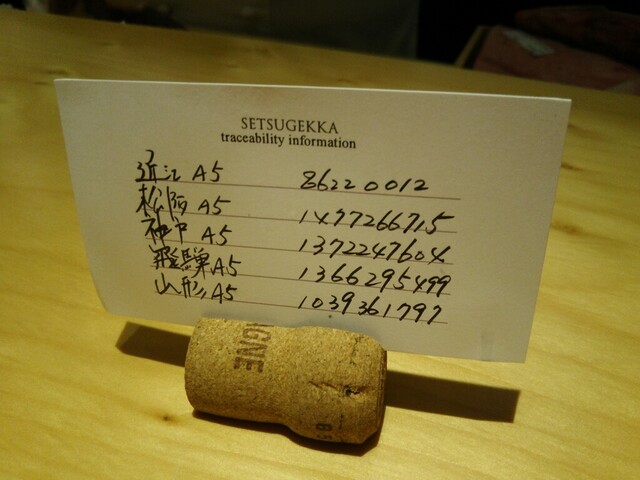 SETSUGEKKA
traceability information
近江 A5 86220012
松阪 A5 1477266715
神戸 A5 1372247604
飛騨 A5 1366295499
山形 A5 1039361797
GNE